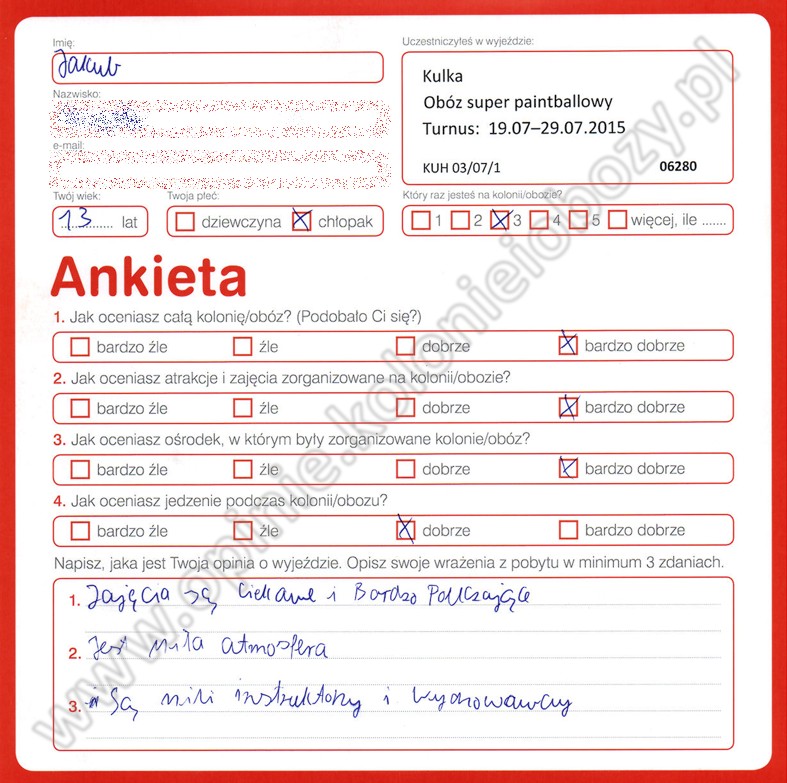 Imię:
Jakub
Uczestniczyłeś w wyjeździe:
Kulka
Obóz super paintballowy
Turnus: 19.07–29.07.2015
KUH 03/07/1 06280
Nazwisko:
e-mail:
Twój wiek:
13 lat
Twoja płeć:
dziewczyna chłopak
Który raz jesteś na kolonii/obozie?
1 2 3 4 5 więcej, ile .......
Ankieta
1. Jak oceniasz całą kolonię/obóz? (Podobało Ci się?)
bardzo źle źle dobrze bardzo dobrze
2. Jak oceniasz atrakcje i zajęcia zorganizowane na kolonii/obozie?
bardzo źle źle dobrze bardzo dobrze
3. Jak oceniasz ośrodek, w którym były zorganizowane kolonie/obóz?
bardzo źle źle dobrze bardzo dobrze
4. Jak oceniasz jedzenie podczas kolonii/obozu?
bardzo źle źle dobrze bardzo dobrze
Napisz, jaka jest Twoja opinia o wyjeździe. Opisz swoje wrażenia z pobytu w minimum 3 zdaniach.
1. Zajęcia są ciekawe i Bardzo Pouczające
2. Jest miła atmosfera
3. Są mili instruktorzy i wychowawcy
www.opinie.kolonieiobozy.pl